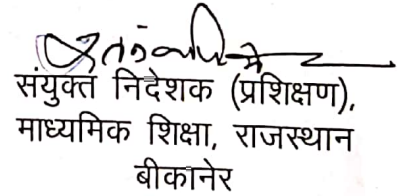 संयुक्त निदेशक (प्रशिक्षण),
माध्यमिक शिक्षा, राजस्थान
बीकानेर